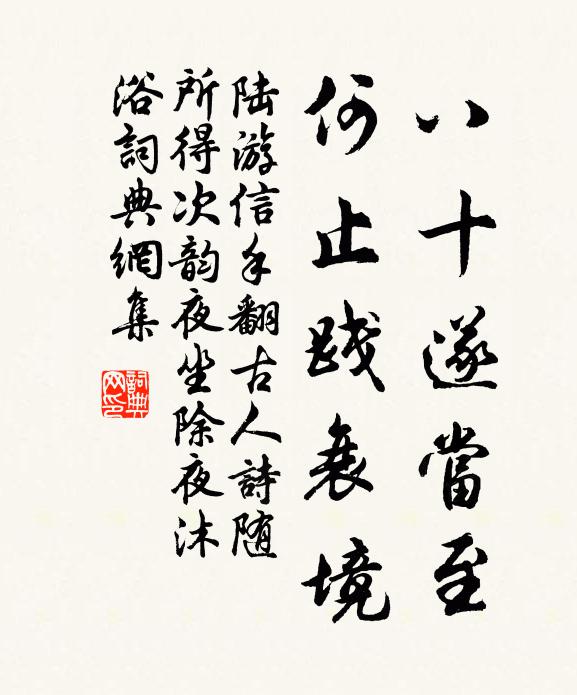 八十遂當至
何止踐衰境
陆游信手翻古人詩随
所得次韵夜坐除夜沐
浴詞典網集
詞典网印